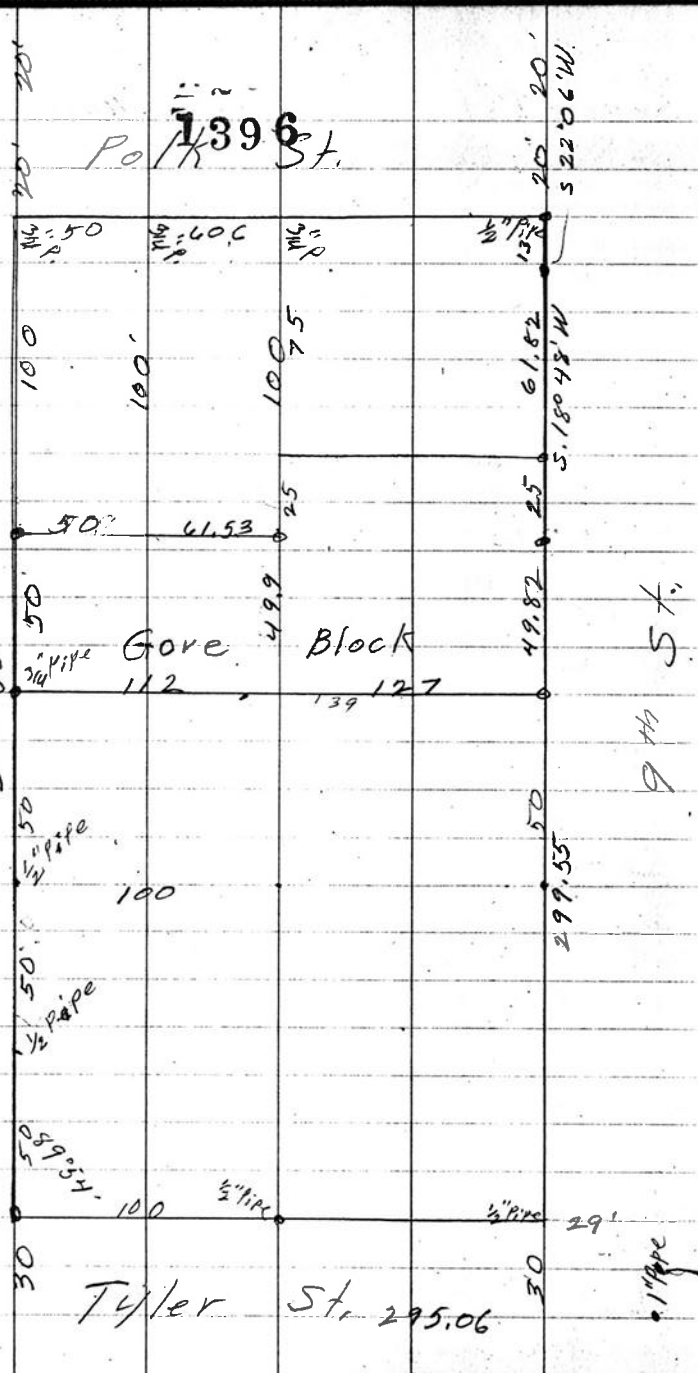 20' 20'
1396
Polk St.
20' 20'
S 22°06'W
50 40.6
1/2" Pipe
13
100 100' 100 75 61.82
S. 18°48'W
25 25
50 61.53
50 49.9 49.82
3/4" Pipe
Gore Block
112 139 127
9th St.
50 50
1/2" Pipe
100
299.55
50
1/2 Pipe
50
89°54'
100 1/2" Pipe 1/2" Pipe 29'
30 30
1" Pipe
Tyler St. 295.06